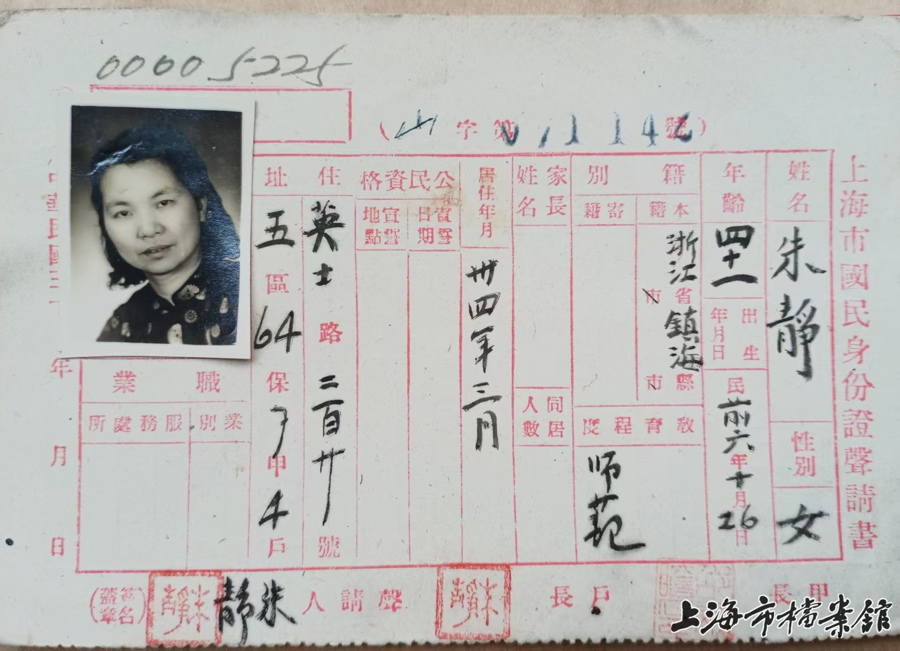 00005225
(山字第011142號)
上海市國民身份證聲請書
姓名 朱靜
性別 女
年齡 四十一
出生年月日 民前六年十月26日
籍別
本籍 浙江省市鎮海縣市
寄籍
教育程度 师范
家長姓名
同居人數
居住年月 卅四年三月
公民資格
宣誓日期
宣誓地點
住址 英士路二百廿號
五區64保7甲4戶
職業
業別
服務處所
年月日
甲長
戶長
朱靜
聲請人 朱靜
朱靜
(簽名蓋章)
上海市檔案館